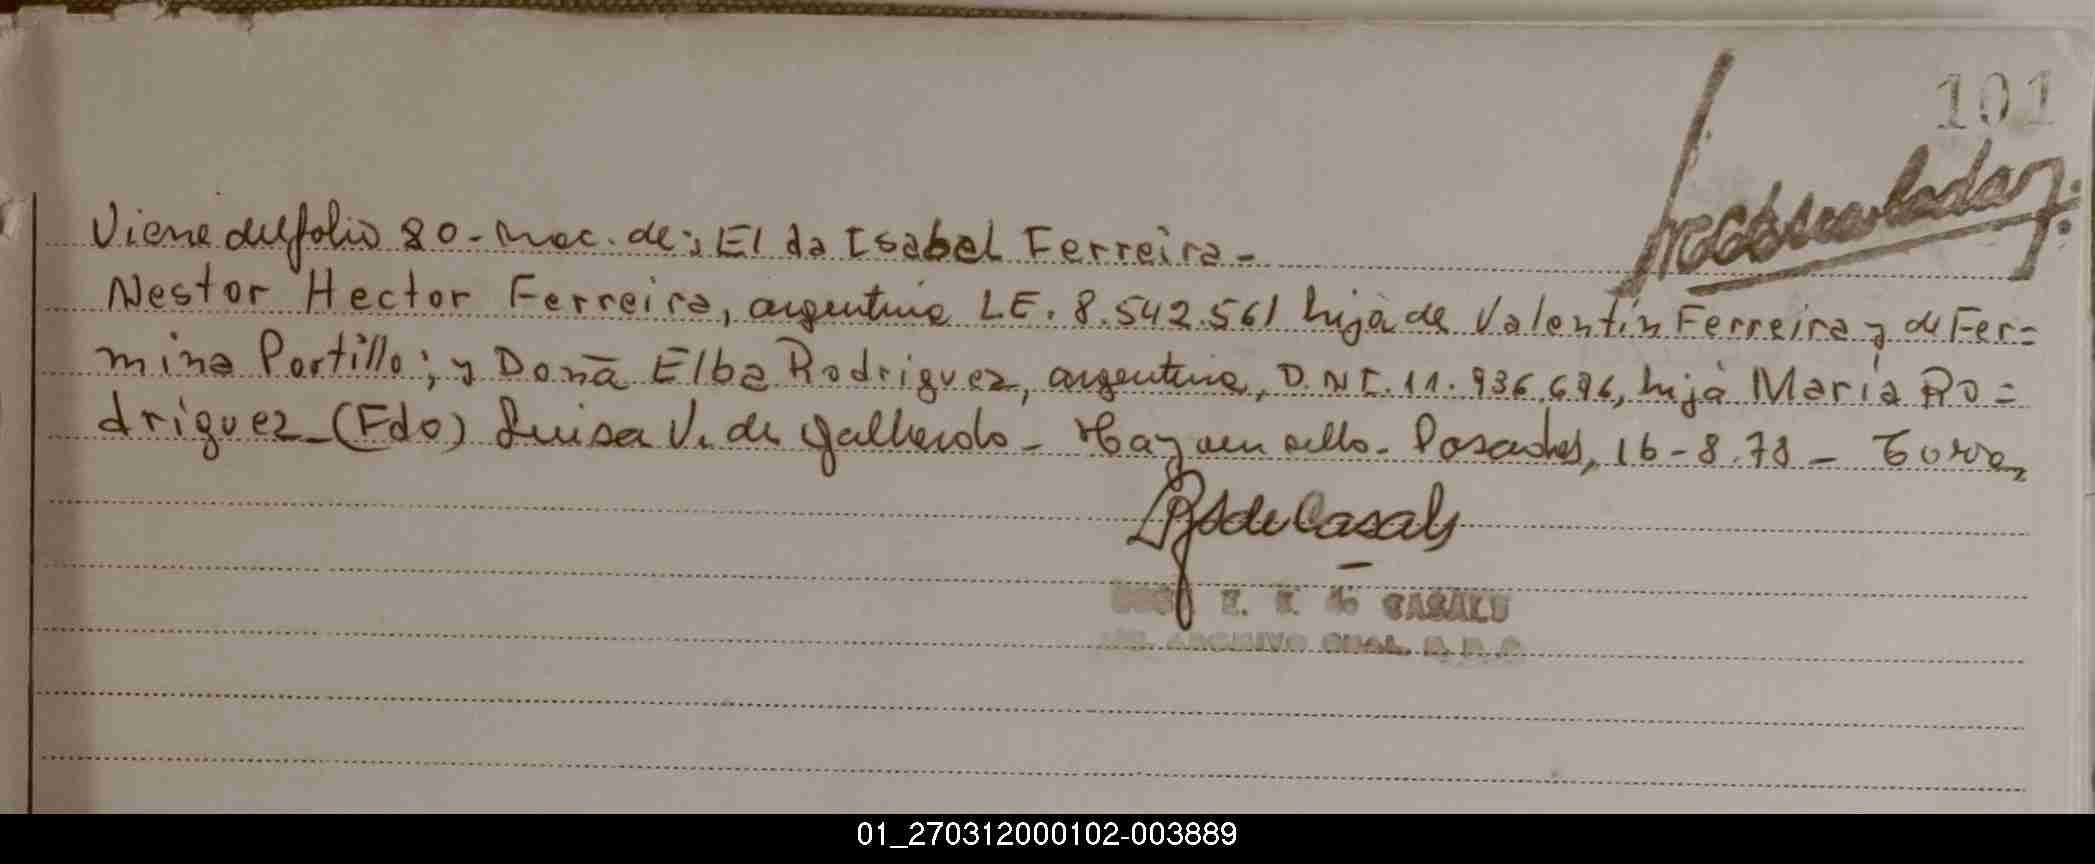 101
Viene del folio 80 - Nac. de: Elda Isabel Ferreira -
Nestor Hector Ferreira, argentino LE. 8.542.561 hijo de Valentín Ferreira y de Fer=
mina Portillo; y Doña Elba Rodriguez, argentina, D.N.I. 11.936.696, hija María Ro=
driguez - (Fdo) Luisa V. de Gallardo - Hay un sello - Posadas, 16-8.78 -
de Casals
CASALS
ARCHIVO GRAL.
01_270312000102-003889